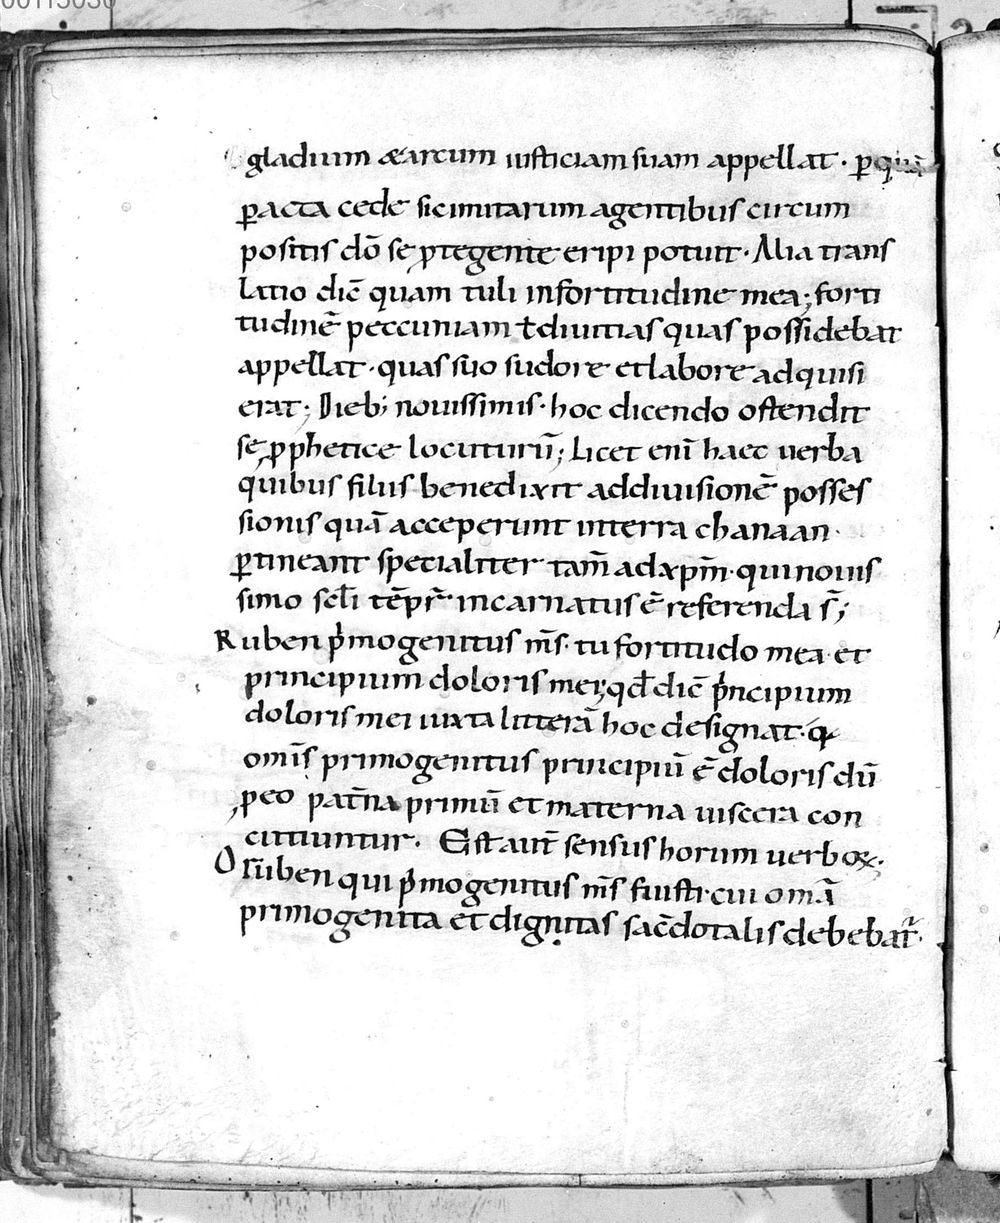 00115036
gladium & arcum iusticiam suam appellat · ꝑ quā
ꝑacta cede sicimitarum agentibus circum
positis dō se ꝓtegente eripi potuit · Alia trans
latio dic̄ quam tuli in fortitudine mea; forti
tudinē peccuniam ł diuitias quas possidebat
appellat · quas suo sudore et labore adquisi
erat; Dieb; nouissimis · hoc dicendo ostendit
se ꝓphetice locuturū; Licet enī haec uerba
quibus filiis benedixit ad diuisionē posses
sionis quā acceperunt in terra chanaan ·
ꝑtineant specialiter tam̄ ad xp̄m · qui nouis
simo sc̄li tēpr̄ incarnatus ē referenda s̄;
Ruben pͥmogenitus m̄s · tu fortitudo mea et
principium doloris mei; qđ dic̄ pͥncipium
doloris mei iuxta litterā hoc designat · ꝙ
omīs primogenitus principiū ē doloris dū
ꝓ eo pat̄na primū et materna uiscera con
cutiuntur · Est aut̄ sensus horum uerboꝝ ·
O ruben qui pͥmogenitus m̄s fuisti · cui omā
primogenita et dignitas sac̄dotalis debebat̄ ·